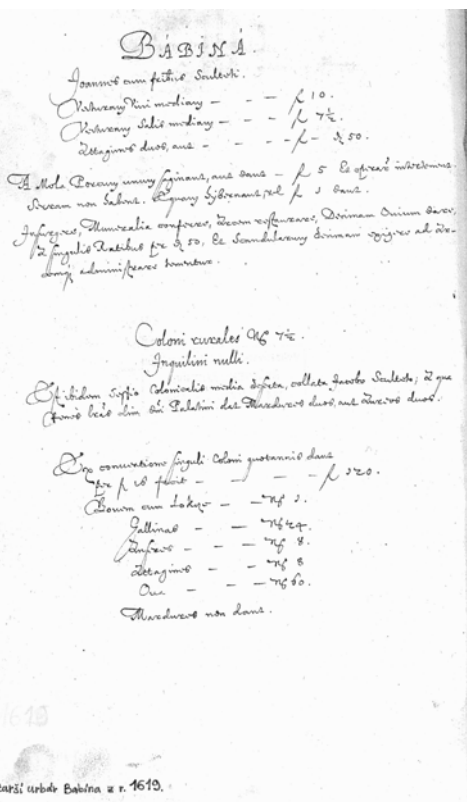 BÁBINÁ.
Joannes cum fratribus Sculteti.
Vecturam Vini mediam — — — f 10.
Vecturam Salis mediam — — — f 7½.
Attagines duos, aut — — — f — d 50.
A Mola Porcum unum saginant, aut dant — f 5 Et operas
Serram non habent. Equum hybernant, vel f 1 dant.
Anseres, Muneralia conferre, Arcem restaurare, Decimam Ovium dare,
A singulis Ratibus per d 50, Et Scandularum Decimam exigere ad
administrare tenentur.
Coloni rurales No 7½.
Inquilini nulli.
Est ibidem Sessio Colonicalis media deserta, collata Jacobo Sculteto; A qua
olim Palatini dat Mardures duos, aut Aureos duos.
Ex conventione singuli Coloni quotannis dant
per f 16 facit — — — f 120.
Bovem cum — No 1.
Gallinas — — No 24.
Anseres — — No 8.
Attagines — — No 8
Ova — — — No 60.
Mardures non dant.
1619
starší urbár Babina z r. 1619.